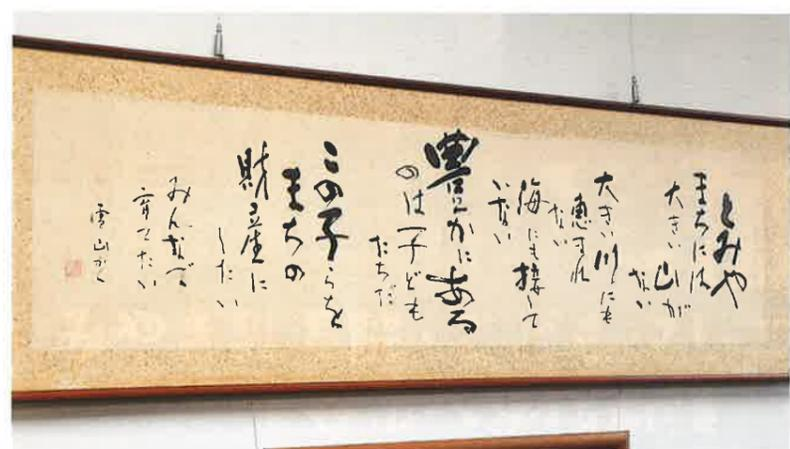 とみや
まちには
大きい山が
ない
大きい川にも
恵まれ
ない
海にも接して
いない
豊かにある
のは子ども
たちだ
この子らを
まちの
財産に
したい
みんなで
育てたい
雪山かく